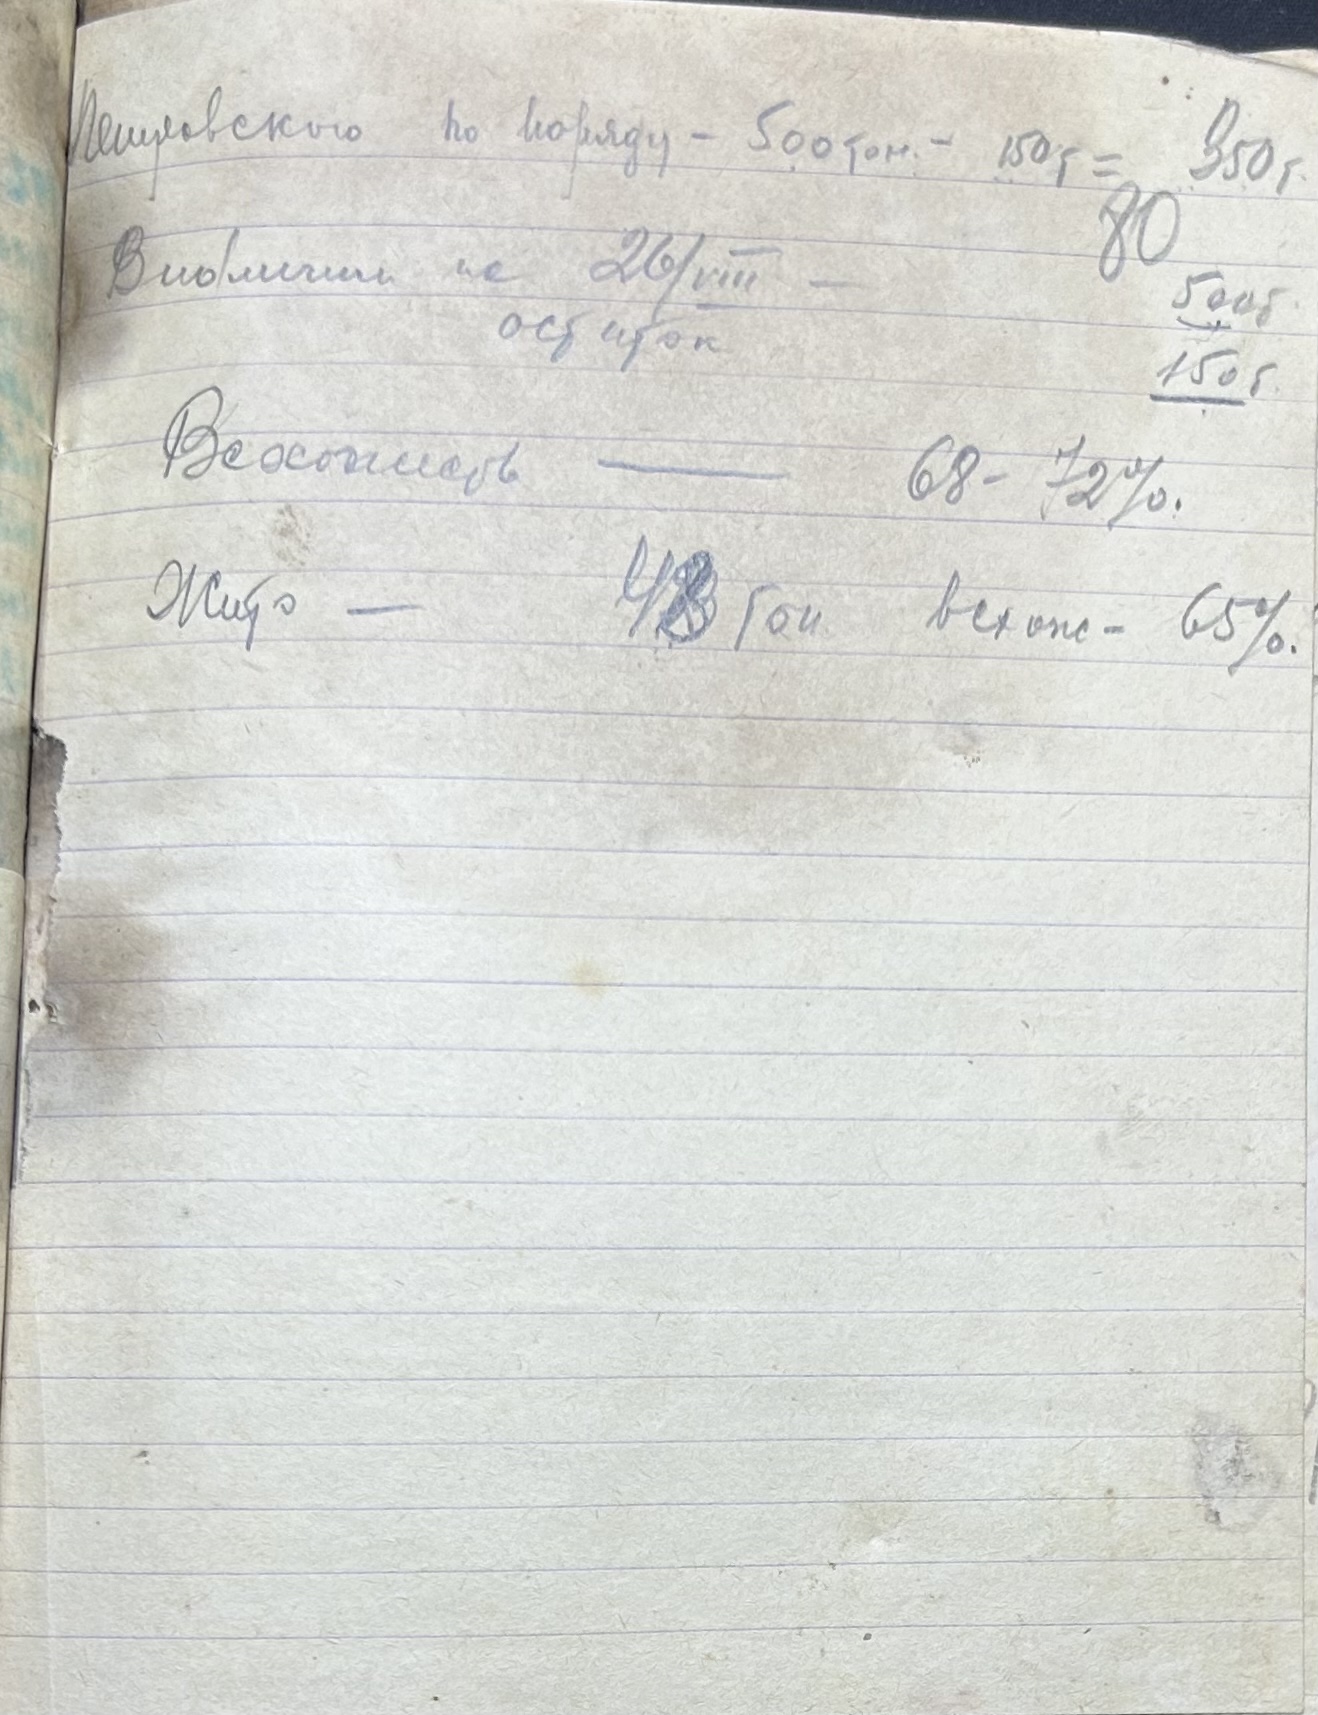 Петровского по наряду - 500 тон. - 150 т = 350 т.
80
на 26/VIII — 500 т.
остаток 150 т.
Всхожесть — 68 - 72%.
Жито — тон. всхож - 65%.